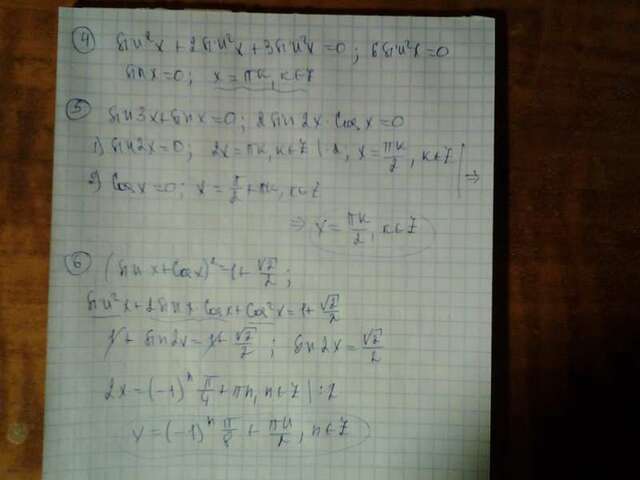 ④ sin²x + 2sin²x + 3sin²x = 0; 6sin²x = 0
sin x = 0; x = πk, k∈Z
⑤ sin3x + sin x = 0; 2sin2x cos x = 0
1) sin2x = 0; 2x = πk, k∈Z |:2, x = πk/2, k∈Z | ⇒
2) cos x = 0; x = π/2 + πk, k∈Z
⇒ x = πk/2, k∈Z
⑥ (sin x + cos x)² = 1 + √2/2;
sin²x + 2sin x cos x + cos²x = 1 + √2/2
1 + sin2x = 1 + √2/2; sin2x = √2/2
2x = (-1)ⁿ π/4 + πn, n∈Z |:2
x = (-1)ⁿ π/8 + πn/2, n∈Z